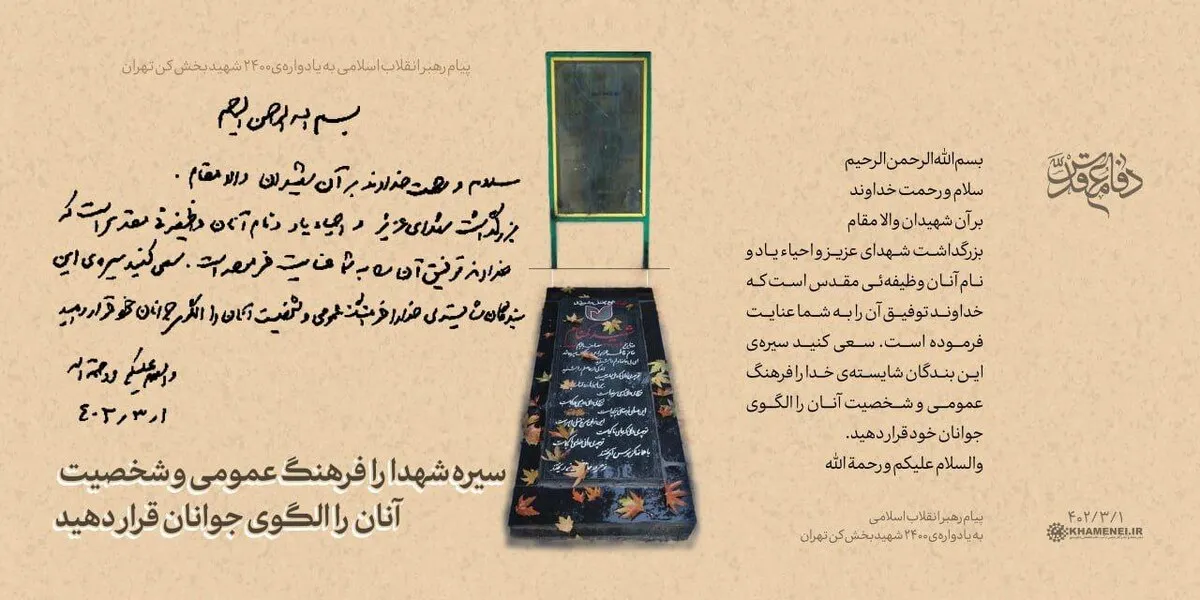 پیام رهبر انقلاب اسلامی به یادواره‌ی ۲۴۰۰ شهید بخش کن تهران
بسم الله الرحمن الرحیم
سلام و رحمت خداوند بر آن شهیدان والا مقام .
بزرگداشت شهدای عزیز و احیاء یاد و نام آنان وظیفه‌ئی مقدس است که
خداوند توفیق آن را به شما عنایت فرموده است. سعی کنید سیره‌ی این
بندگان شایسته‌ی خدا را فرهنگ عمومی و شخصیت آنان را الگوی جوانان خود قرار دهید
والسلام علیکم و رحمة الله
۴۰۲٫۳٫۱
سیره شهدا را فرهنگ عمومی و شخصیت
آنان را الگوی جوانان قرار دهید
شهید گمنام
دفاع مقدس
بسم‌الله‌الرحمن‌الرحیم
سلام و رحمت خداوند
بر آن شهیدان والا مقام
بزرگداشت شهدای عزیز و احیاء یاد و
نام آنان وظیفه‌ئی مقدس است که
خداوند توفیق آن را به شما عنایت
فرموده است. سعی کنید سیره‌ی
این بندگان شایسته‌ی خدا را فرهنگ
عمومی و شخصیت آنان را الگوی
جوانان خود قرار دهید.
والسلام علیکم و رحمة الله
پیام رهبر انقلاب اسلامی
به یادواره‌ی ۲۴۰۰ شهید بخش کن تهران
۴۰۲/۳/۱
KHAMENEI.IR